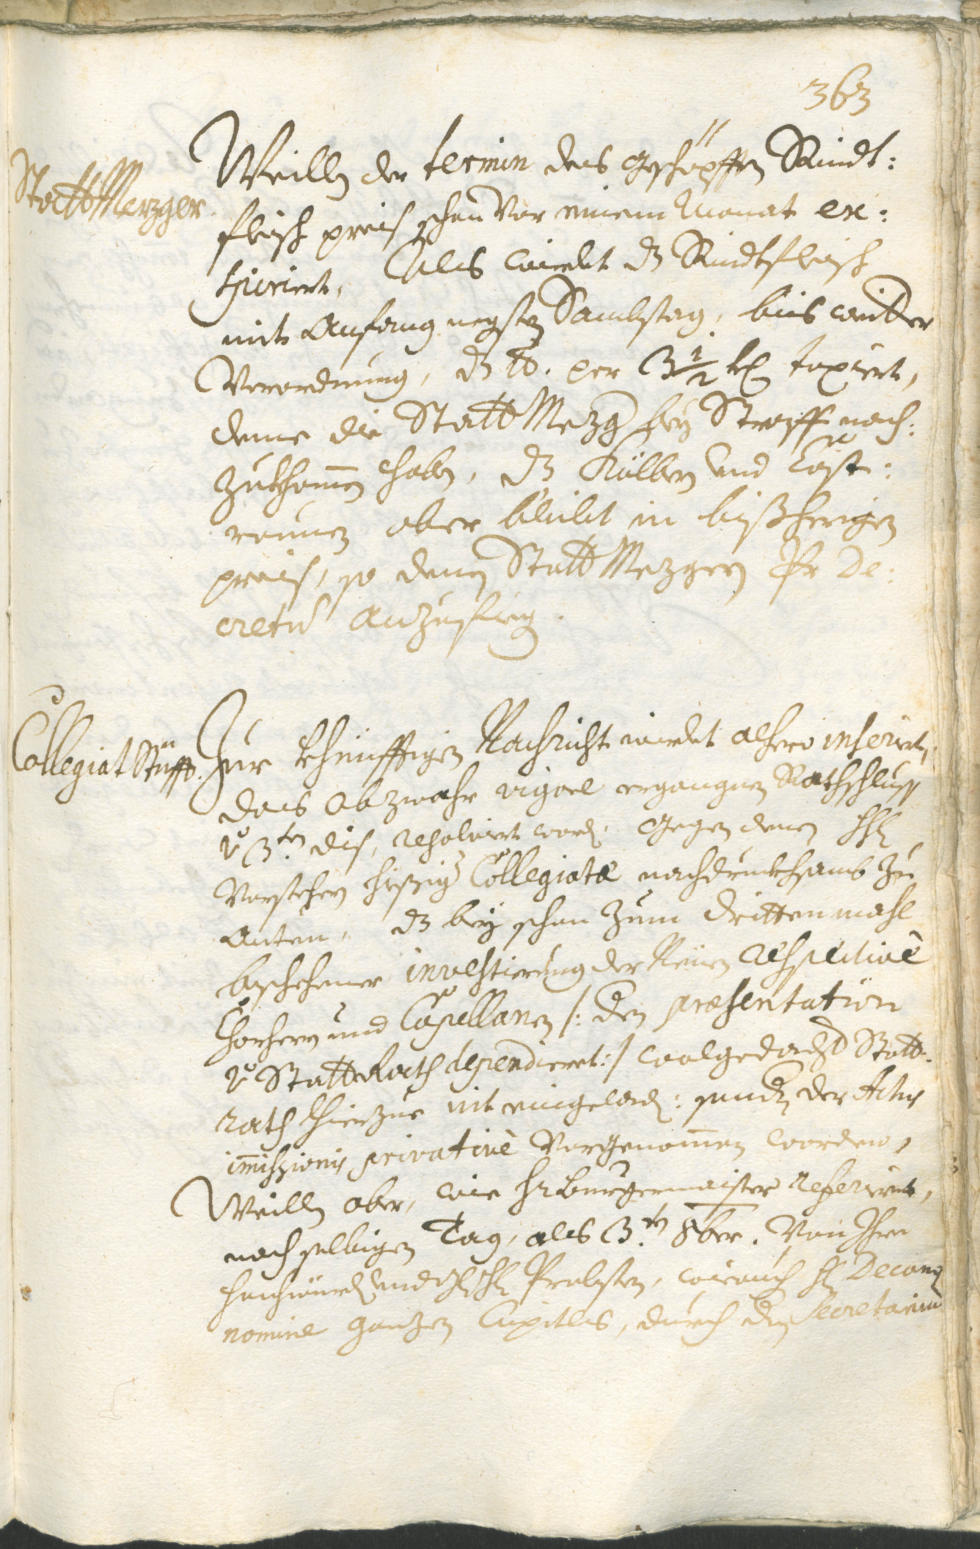 363
Statt Mezger
Weillen der termin des geschöpfften Rindt:
fleisch preis schon vor einem Monat ex:
spiriert, als wirdet dz Rindtfleisch
mit anfang negsten Sambstag, bis weitter
Verordnung, dz lb. per 3 1/2 kr taxiert,
deme die Statt Mezger bey Straff nach:
zukhommen haben, dz Kälbern und Cast:
raunen aber bleibt in bißherigen
preis, so denen Statt Mezgern Pr De:
cretum anzufiegen.
Collegiat Stüfft.
Zur khünfftigen Nachricht wirdet alhero inseriert,
das obzwahr vigore ergangnen Rathschluss
vom 3.ten dis, resolviert worden gegen denen HH
Vorstehern hiesiger Collegiatæ nachdrukhsamb zu
anten, dz bey schon zum dritten mahl
beschehener investierung der Neuen respective
Chorherrn und Capellanen /: den præsentation
vom Statt Rath dependieret :/ wolgedacht Statt:
rath hierzue nit eingeladen: sondern der Actus
immissionis privative vorgenommen worden,
Weillen aber, wie Hr Burgermaister referiert,
noch selbigen Tag, als 3.ten 8ber. von Ihro
Hochwürden und HH Probsten, wie auch H Decano
nomine ganzen Capitels, durch den Secretarium